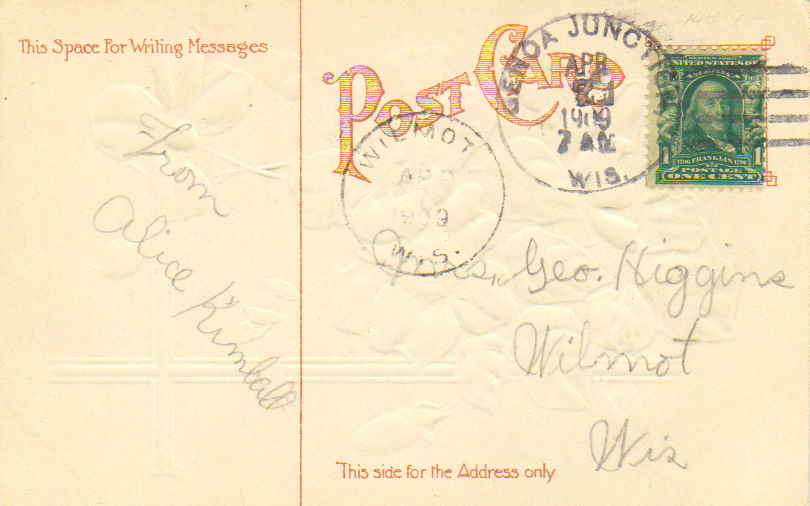 This Space For Writing Messages
POST CARD
GENOA JUNCT
APR
1909
7 AM
WIS.
UNITED STATES OF
AMERICA
1706 FRANKLIN 1790
POSTAGE
1 ONE CENT 1
WILMOT
1909
WIS.
From
Alice Kimball
Mrs. Geo. Higgins
Wilmot
Wis
This side for the Address only